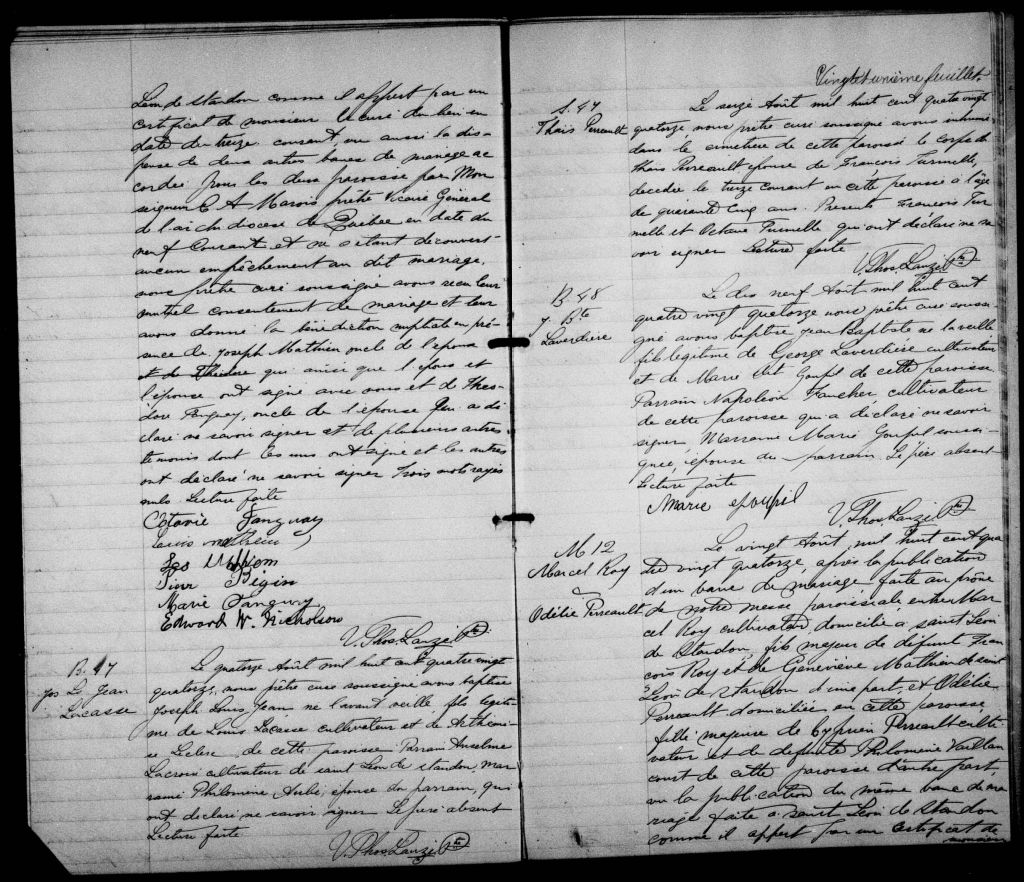 Léon de Standon comme il appert par un
certificat de monsieur le curé du lieu en
date du treize courant, vu aussi la dis-
pense de deux autres bancs de mariage ac
cordée pour les deux paroisse par Mon
seigneur C A Marois prêtre Vicaire Général
de l'archidiocese de Québec en date du
neuf Courant, et ne s'étant découvert
aucun empêchement au dit mariage,
nous prêtre curé soussigné avons recu leur
mutuel consentement de mariage et leur
avons donné la bénédiction nuptiale en pré-
sence de Joseph Mathieu oncle de l'epoux
et de Théodore qui ainsi que l'époux et
l'épouse ont signé avec nous et de Theo-
dore Tanguay, oncle de l'épouse qui a dé
claré ne savoir signer et de plusieurs autres
temoins dont les uns ont signé et les autres
ont déclaré ne savoir signer trois mots rayés
nuls Lecture faite
Octavie Tanguay
Louis mathieu
Jos
Pierr Bégin
Marie Tanguay
Edward W. Nicholson
V. Phos. Lauzé Ptre
B. 47
Jos Ls Jean
Lacasse
Le quatorze Août mil huit cent quatre vingt
quatorze, nous prêtre curé soussigné avons baptisé
Joseph Louis Jean né l'avant veille fils légiti-
me de Louis Lacasse cultivateur et de Arthémi-
se Leclerc de cette paroisse Parrain Anselme
Lacroix cultivateur de saint Léon de Standon, mar
raine Philomène Aubé, épouse du parrain, qui
ont déclaré ne savoir signer Le père absent
Lecture faite
V. Phos. Lauzé Ptre
Vingt et unième feuillet.
S. 47
Thais Perreault
Le seize Août mil huit cent quatre vingt
quatorze nous prêtre curé soussigné avons inhumé
dans le cimetière de cette paroisse le corps de
Thais Perreault épouse de François Turmelle,
decedée le treize courant en cette paroisse à l'âge
de quarante cinq ans. Presents François Tur
melle et Octave Turmelle qui ont déclaré ne sa
voir signer Lecture faite
V. Phos. Lauzé Ptre
B. 48
J. Bte
Laverdière
Le dix neuf Août mil huit cent
quatre vingt quatorze nous prêtre curé soussi-
gné avons baptisé Jean Baptiste né la veille
fils légitime de George Laverdière cultivateur
et de Marie Goupil de cette paroisse
Parrain Napoléon Faucher, cultivateur
de cette paroisse qui a déclaré ne savoir
signer Marraine Marie Goupil soussi-
gnée, épouse du parrain. Le père absent
Lecture faite
Marie goupil
V. Phos. Lauzé Ptre
M 12
Marcel Roy
Odélie Perreault
Le vingt Août, mil huit cent qua
tre vingt quatorze, après la publication
d'un banc de mariage faite au prône
de notre messe paroissiale, entre Mar
cel Roy cultivateur, domicilié à saint Léon
de Standon, fils majeur de défunt Fran
çois Roy et de Geneviève Mathieu de saint
Léon de Standon d'une part, et Odélie
Perreault domiciliée en cette paroisse
fille majeure de Cyprien Perreault culti
vateur et de defunte Philomène Vaillan
court de cette paroisse d'autre part,
vu la publication du même banc de ma
riage faite à saint Léon de Standon
comme il appert par un certificat de
monsieur